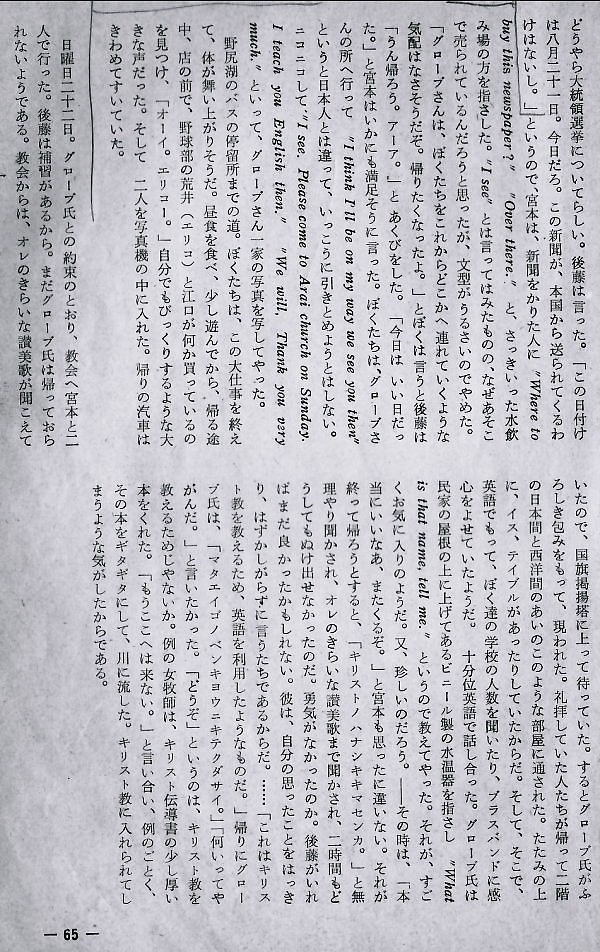 どうやら大統領選挙についてらしい。後藤は言った。「この日付け
は八月二十一日。今日だろ。この新聞が、本国から送られてくるわ
けはないし。」というので、宮本は、新聞をかりた人に "Where to
buy this newspaper?" "Over there." と、さっきいった水飲
み場の方を指さした。"I see" とは言ってはみたものの、なぜあそこ
で売られているんだろうと思ったが、文型がうるさいのでやめた。
「グローブさんは、ぼくたちをこれからどこかへ連れていくような
気配はなさそうだぞ。帰りたくなったよ。」とぼくは言うと後藤は
「うん帰ろう。アーア。」と あくびをした。「今日は いい日だっ
た。」と宮本はいかにも満足そうに言った。ぼくたちは、グローブさ
んの所へ行って "I think I'll be on my way we see you then"
というと日本人とは違って、いっこうに引きとめようとはしない。
ニコニコして、"I see. Please come to Arai church on Sunday.
I teach you English then." "We will, Thank you very
much." といって、グローブさん一家の写真を写してやった。
野尻湖のバスの停留所までの道。ぼくたちは、この大仕事を終え
て、体が舞い上がりそうだ。昼食を食べ、少し遊んでから、帰る途
中、店の前で、野球部の荒井（エリコ）と江口が何か買っているの
を見つけ、「オーイ。エリコー。」自分でもびっくりするような大
きな声だった。そして 二人を写真機の中に入れた。帰りの汽車は
きわめてすいていた。
日曜日二十二日。グローブ氏との約束のとおり、教会へ宮本と二
人で行った。後藤は補習があるから。まだグローブ氏は帰っておら
れないようである。教会からは、オレのきらいな讃美歌が聞こえて
いたので、国旗掲揚塔に上って待っていた。するとグローブ氏がふ
ろしき包みをもって、現われた。礼拝していた人たちが帰って二階
の日本間と西洋間のあいのこのような部屋に通された。たたみの上
に、イス、テイブルがあったりしていたからだ。そして、そこで、
英語でもって、ぼく達の学校の人数を聞いたり、ブラスバンドに感
心をよせていたようだ。 十分位英語で話し合った。グローブ氏は
民家の屋根の上に上げてあるビニール製の水温器を指さし "What
is that name, tell me." というので教えてやった。それが、すご
くお気に入りのようだ。又、珍しいのだろう。——その時は、「本
当にいいなあ、またくるぞ。」と宮本も思ったに違いない。それが
終って帰ろうとすると、「キリストノハナシキキマセンカ。」と無
理やり聞かされ、オレのきらいな讃美歌まで聞かされ、二時間もど
うしてもぬけ出せなかったのだ。勇気がなかったのか。後藤がいれ
ばまだ良かったかもしれない。彼は、自分の思ったことをはっき
り、はずかしがらずに言うたちであるからだ。……「これはキリス
ト教を教えるため、英語を利用したようなものだ。」帰りにグロー
ブ氏は、「マタエイゴノベンキヨウニキテクダサイ。」「何いってや
がんだ。」と言いたかった。「どうぞ」というのは、キリスト教を
教えるためじゃないか。例の女牧師は、キリスト伝導書の少し厚い
本をくれた。「もうここへは来ない。」と言い合い、例のごとく、
その本をギタギタにして、川に流した。キリスト教に入れられてし
まうような気がしたからである。
— 65 —